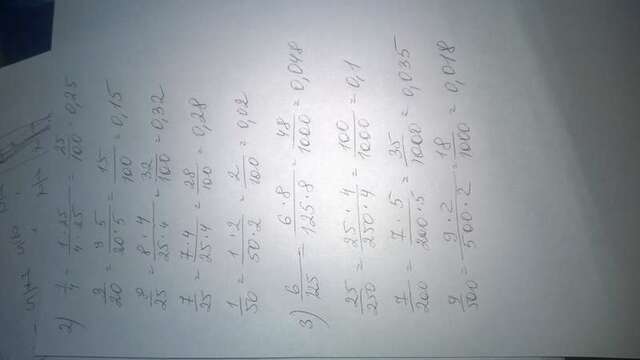 2) 1/4 = 1·25/4·25 = 25/100 = 0,25
3/20 = 3·5/20·5 = 15/100 = 0,15
8/25 = 8·4/25·4 = 32/100 = 0,32
7/25 = 7·4/25·4 = 28/100 = 0,28
1/50 = 1·2/50·2 = 2/100 = 0,02
3) 6/125 = 6·8/125·8 = 48/1000 = 0,048
25/250 = 25·4/250·4 = 100/1000 = 0,1
7/200 = 7·5/200·5 = 35/1000 = 0,035
9/500 = 9·2/500·2 = 18/1000 = 0,018